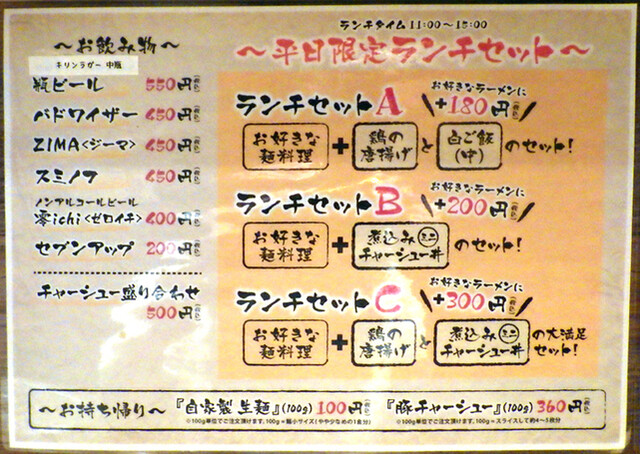 ～お飲み物～
キリンラガー 中瓶
瓶ビール 550円(税込)
バドワイザー 450円(税込)
ZIMA<ジーマ> 450円(税込)
スミノフ 450円(税込)
ノンアルコールビール
零ichi<ゼロイチ> 400円(税込)
セブンアップ 200円(税込)
チャーシュー盛り合わせ
500円(税込)
ランチタイム 11:00～15:00
～平日限定ランチセット～
ランチセットA お好きなラーメンに +180円(税込)
お好きな麺料理 + 鶏の唐揚げ と 白ご飯(中) のセット!
ランチセットB お好きなラーメンに +200円(税込)
お好きな麺料理 + 煮込みミニチャーシュー丼 のセット!
ランチセットC お好きなラーメンに +300円(税込)
お好きな麺料理 + 鶏の唐揚げ と 煮込みミニチャーシュー丼 の大満足セット!
～お持ち帰り～ 『自家製 生麺』(100g) 100円(税込) 『豚チャーシュー』(100g) 360円(税込)
※100g単位でご注文頂けます。100g=麺小サイズ(やや少なめの1食分) ※100g単位でご注文頂けます。100g=スライスして約4～5枚分